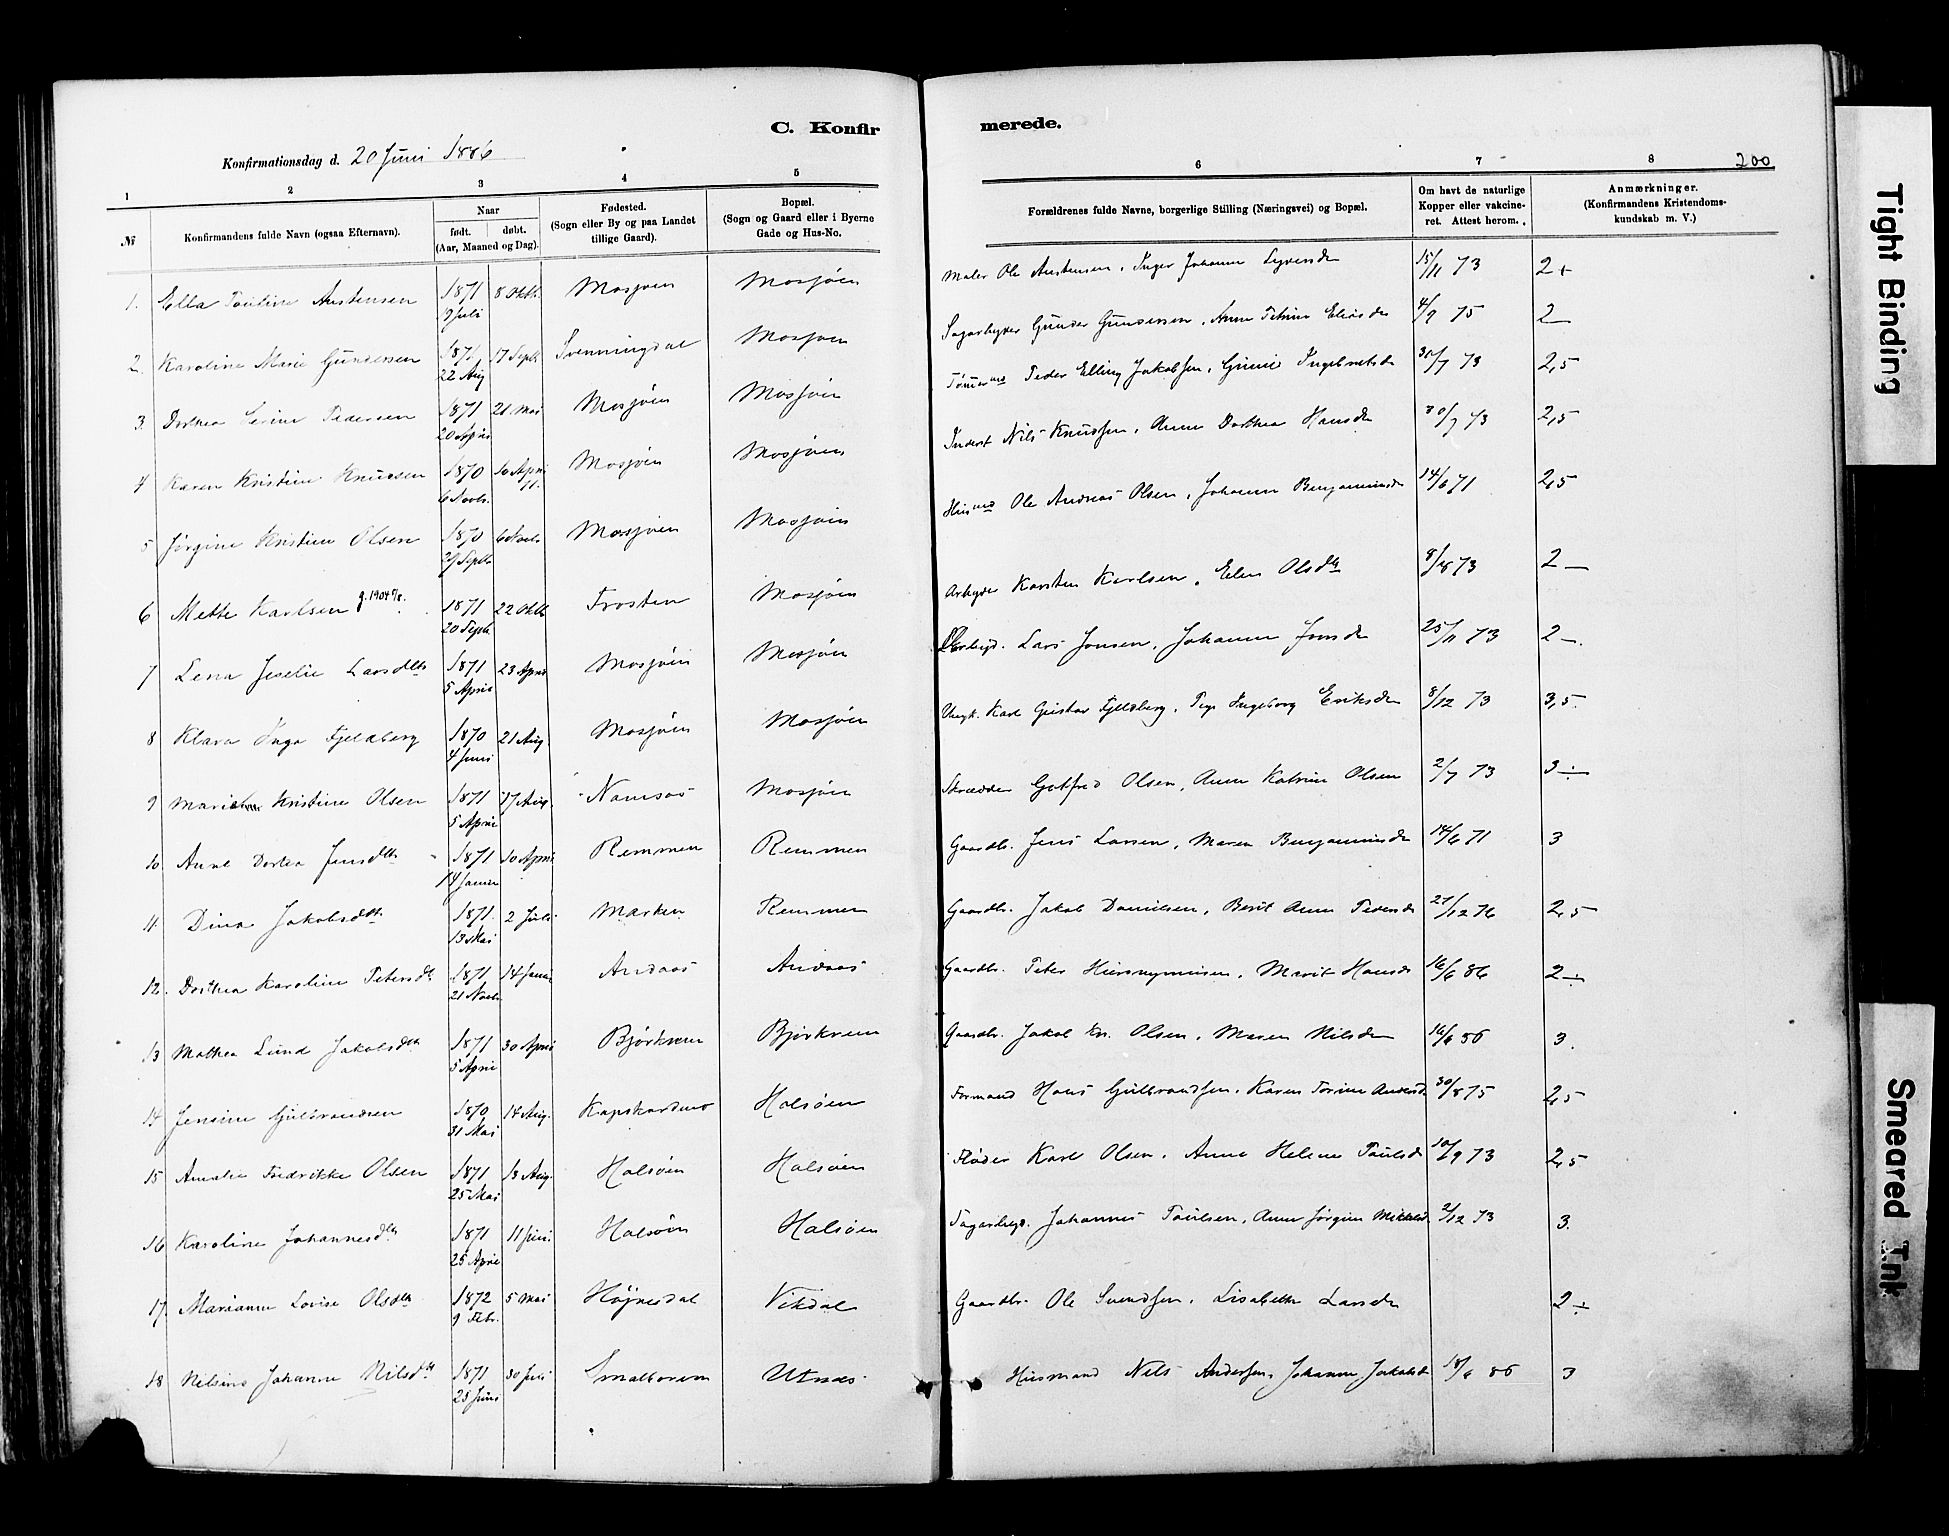 C. Konfirmerede.
200
Konfirmationsdag d. 20 Juni 1886
1 2 3 4 5 6 7 8
№
Konfirmandens fulde Navn (ogsaa Efternavn).
Naar
født. døbt.
(Aar, Maaned og Dag).
Fødested.
(Sogn eller By og paa Landet
tillige Gaard).
Bopæl.
(Sogn og Gaard eller i Byerne
Gade og Hus-No.
Forældrenes fulde Navne, borgerlige Stilling (Næringsvei) og Bopæl.
Om havt de naturlige
Kopper eller vakcine-
ret. Attest herom.
Anmærkninger.
(Konfirmandens Kristendoms-
kundskab m. V.)
1. Ella Pauline Austensen 1871 9 Juli 8 Oktb. Mosjøen Mosjøen Maler Ole Austensen, Inger Johanna 15/11 73 2+
2. Karoline Marie Gundersen 1871 22 Aug 17 Septb. Svenningdal Mosjøen Sagarbeider Gunder Gundersen, Anne Petrine Eliasdr 4/9 75 2
3. Dorthea Serine Pedersen 1871 20 April 21 Mai Mosjøen Mosjøen Tømmermd Peder Elling Jakobsen, Ingebretsdr 30/7 73 2,5
4 Karen Kristine Knudsen 1870 6 Novbr. 10 April 71. Mosjøen Mosjøen Inderst Nils Knudsen, Anne Dorthea Hansdr 30/7 73 2,5
5 Jørgine Kristine Olsen 1870 29 Septb 6 Novbr Mosjøen Mosjøen Husmd Ole Andreas Olsen, Johanna Benjaminsdr 14/6 71 2,5
6 Mette Karlsen g. 1904 7/8. 1871 20 Septb. 22 Oktb Trosten Mosjøen Arbeider Karsten Karlsen, Elen Olsdtr 8/8 73 2
7 Lena Jeselie Larsdtr 1871 5 April 23 April Mosjøen Mosjøen Lars Jonsen, Johanna Jonsdr 25/11 73 2 -.
8 Klara Inga Fjeldberg 1870 4 Juni 21 Aug. Mosjøen Mosjøen Karl Gustav Fjeldberg, Ingeborg Eriksdr 8/12 73 3,5.
9 Kristine Olsen 1871 5 April 17 Aug. Namsos Mosjøen Skrædder Gotfred Olsen, Anne Katrine Olsen 2/7 73 3 ÷
10. Anne Dortea Jensdtr 1871 14 Januar 10 April Remmen Remmen Gaardbr. Jens Larsen, Maren Benjaminsdr 14/6 71 3
11. Dina Jakobsdtr 1871. 13 Mai 2 Juli Marken Remmen Gaardbr. Jakob Danielsen, Berit Anne Pedersdr 27/12 76 2,5
12. Dorthea Karoline Petersdtr 1871 21 Novbr. 14 Januar Andaas Andaas Gaardbr. Peter Hieronymusen, Marit Hansdr 16/6 86 2 ÷
13 Mathea Lund Jakobsdtr 1871 5 April 30 April Bjørkmem Bjørkmem Gaardbr. Jakob Kr. Olsen, Maren Nilsdr 16/6 86 3.
14 Jensine Gulbrandsen 1870 31 Mai 14 Aug. Kapskardmo Halsøen Formand Hans Gulbrandsen, Karen Torine Andersdr 30/8 75 2,5
15 Amalie Fredrikke Olsen 1871 25 Mai 13 Aug. Halsøen Halsøen Fløder Karl Olsen, Anna Helene Paulsdr 10/9 73 2,5
16 Karoline Johannesdtr 1871 25 April 11 Juni. Halsøen Halsøen Sagarbeid. Johannes Paulsen, Anne Jørgine Mikkelsd 2/12 73 3.
17. Marianne Lovise Olsdtr 1872 9 Febr. 5 Mai Højnesdal Vikdal Gaardbr. Ole Svendsen, Lisabeth Larsdr 2 ÷
18 Nilsine Johanne Nilsdtr 1871 25 Juni 30 Juli Smalborem Utnæs Husmand Nils Andersen, Johanna Jakobsd 18/6 86 3
Tight Binding
Smeared Ink